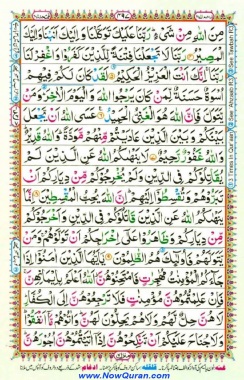 مِنَ اللّٰهِ مِنْ شَیْءٍ ؕ رَبَّنَا عَلَیْكَ تَوَكَّلْنَا وَاِلَیْكَ اَنَبْنَا وَاِلَیْكَ
الْمَصِیْرُ رَبَّنَا لَا تَجْعَلْنَا فِتْنَةً لِّلَّذِیْنَ كَفَرُوْا وَاغْفِرْ لَنَا
رَبَّنَا ۚ اِنَّكَ اَنْتَ الْعَزِیْزُ الْحَكِیْمُ لَقَدْ كَانَ لَكُمْ فِیْهِمْ
اُسْوَةٌ حَسَنَةٌ لِّمَنْ كَانَ یَرْجُوا اللّٰهَ وَالْیَوْمَ الْاٰخِرَ ؕ وَمَنْ
یَّتَوَلَّ فَاِنَّ اللّٰهَ هُوَ الْغَنِیُّ الْحَمِیْدُ عَسَی اللّٰهُ اَنْ یَّجْعَلَ
بَیْنَكُمْ وَبَیْنَ الَّذِیْنَ عَادَیْتُمْ مِّنْهُمْ مَّوَدَّةً ؕ وَاللّٰهُ قَدِیْرٌ ؕ
وَاللّٰهُ غَفُوْرٌ رَّحِیْمٌ لَا یَنْهٰىكُمُ اللّٰهُ عَنِ الَّذِیْنَ لَمْ
یُقَاتِلُوْكُمْ فِی الدِّیْنِ وَلَمْ یُخْرِجُوْكُمْ مِّنْ دِیَارِكُمْ اَنْ
تَبَرُّوْهُمْ وَتُقْسِطُوْۤا اِلَیْهِمْ ؕ اِنَّ اللّٰهَ یُحِبُّ الْمُقْسِطِیْنَ اِنَّمَا
یَنْهٰىكُمُ اللّٰهُ عَنِ الَّذِیْنَ قَاتَلُوْكُمْ فِی الدِّیْنِ وَاَخْرَجُوْكُمْ
مِّنْ دِیَارِكُمْ وَظَاهَرُوْا عَلٰۤی اِخْرَاجِكُمْ اَنْ تَوَلَّوْهُمْ ۚ وَمَنْ
یَّتَوَلَّهُمْ فَاُولٰٓئِكَ هُمُ الظّٰلِمُوْنَ یٰۤاَیُّهَا الَّذِیْنَ اٰمَنُوْۤا اِذَا
جَآءَكُمُ الْمُؤْمِنٰتُ مُهٰجِرٰتٍ فَامْتَحِنُوْهُنَّ ؕ اَللّٰهُ اَعْلَمُ بِاِیْمَانِهِنَّ ۚ
فَاِنْ عَلِمْتُمُوْهُنَّ مُؤْمِنٰتٍ فَلَا تَرْجِعُوْهُنَّ اِلَی الْكُفَّارِ ؕ
لَا هُنَّ حِلٌّ لَّهُمْ وَلَا هُمْ یَحِلُّوْنَ لَهُنَّ ؕ وَاٰتُوْهُمْ مَّاۤ اَنْفَقُوْا ؕ
وَلَا جُنَاحَ عَلَیْكُمْ اَنْ تَنْكِحُوْهُنَّ اِذَاۤ
www.NowQuran.com